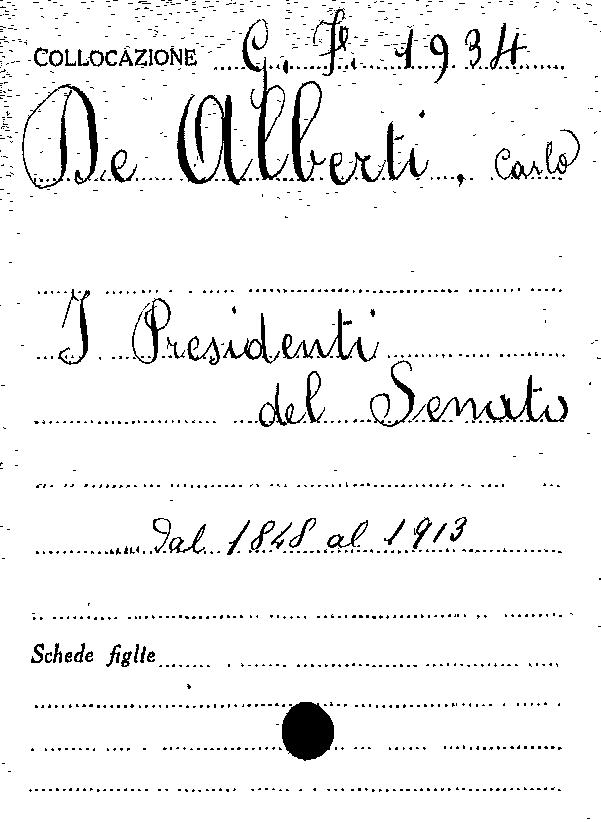 COLLOCAZIONE G. F. 1934
De Alberti, Carlo
I Presidenti
del Senato
Dal 1848 al 1913
Schede figlte